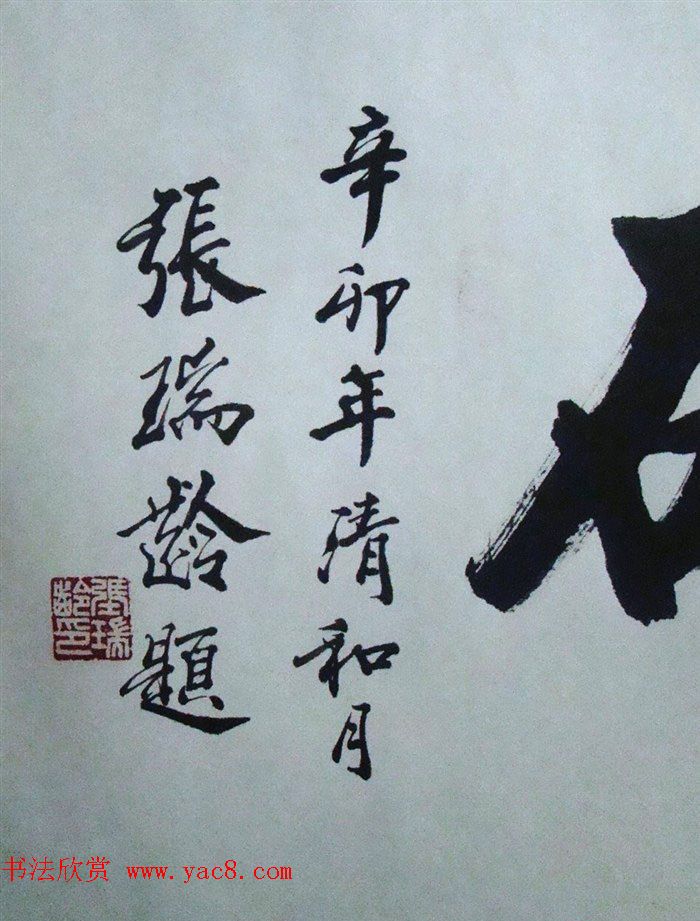 辛卯年清和月
張瑞齡題
張瑞齡印
书法欣赏 www.yac8.com